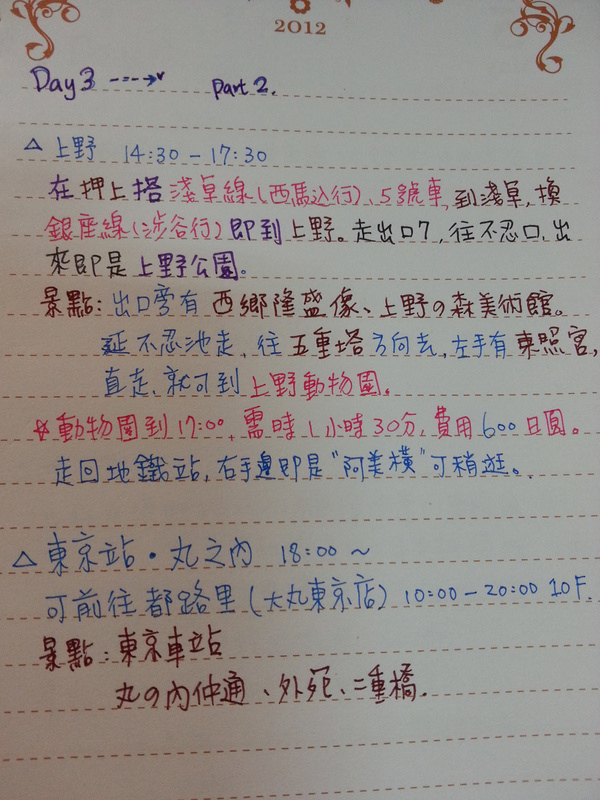 2012
Day 3 ---→ Part 2.
△ 上野 14:30 - 17:30
在押上搭淺草線(西馬込行)、5號車,到淺草,換
銀座線(涉谷行)即到上野。走出口7,往不忍口,出
來即是上野公園。
景點:出口旁有西鄉隆盛像、上野の森美術館。
延不忍池走,往五重塔方向去,左手有東照宮,
直走,就可到上野動物園。
☆動物園到17:00,需時1小時30分,費用600日圓。
走回地鐵站,右手邊即是"阿美橫"可稍逛。
△ 東京站・丸之內 18:00 ~
可前往都路里(大丸東京店) 10:00 - 20:00 10F.
景點:東京車站
丸の內仲通、外苑、二重橋.